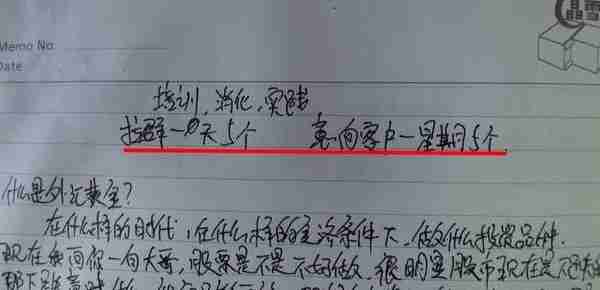 Memo No.
Date
培训,消化,实践
找群一天5个 意向客户一星期5个
什么是外汇黄金?
在什么样的时代,在什么样的经济条件下,做什么投资品种.
现在去问你一句大哥,股票是不是不好做,很明显股市现在是不